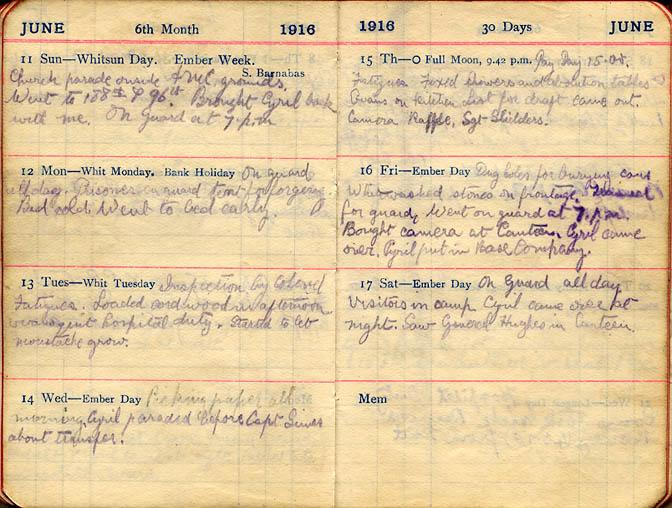 JUNE 6th Month 1916
11 Sun—Whitsun Day. Ember Week.
S. Barnabas
Church parade inside grounds.
Went to 108th & 96th Brought Cyril back
with me. On Guard at 7 p.m
12 Mon—Whit Monday. Bank Holiday On guard
all day. Prisoner in guard tent for forgery
Bad cold Went to bed early.
13 Tues—Whit Tuesday Inspection by Colonel
Fatigues. Loaded cordwood in afternoon
hospital duty. Started to let
moustache grow.
14 Wed—Ember Day Picking paper all
morning Cyril paraded before Capt
about transfer.
1916 30 Days JUNE
15 Th—O Full Moon, 9.42 p.m. Pay Day 15.00.
Fatigues Fixed showers and ablution tables
on Kitchen List for draft came out.
Camera Raffle, Sgt Shilders.
16 Fri—Ember Day Dug holes for burying cans
Whitewashed stones on frontage.
for guard, Went on guard at 7. p.m.
Bought camera at Canteen. Cyril came
over. Cyril put in Base Company.
17 Sat—Ember Day On Guard all day
Visitors in camp Cyril came over at
night. Saw General Hughes in Canteen.
Mem